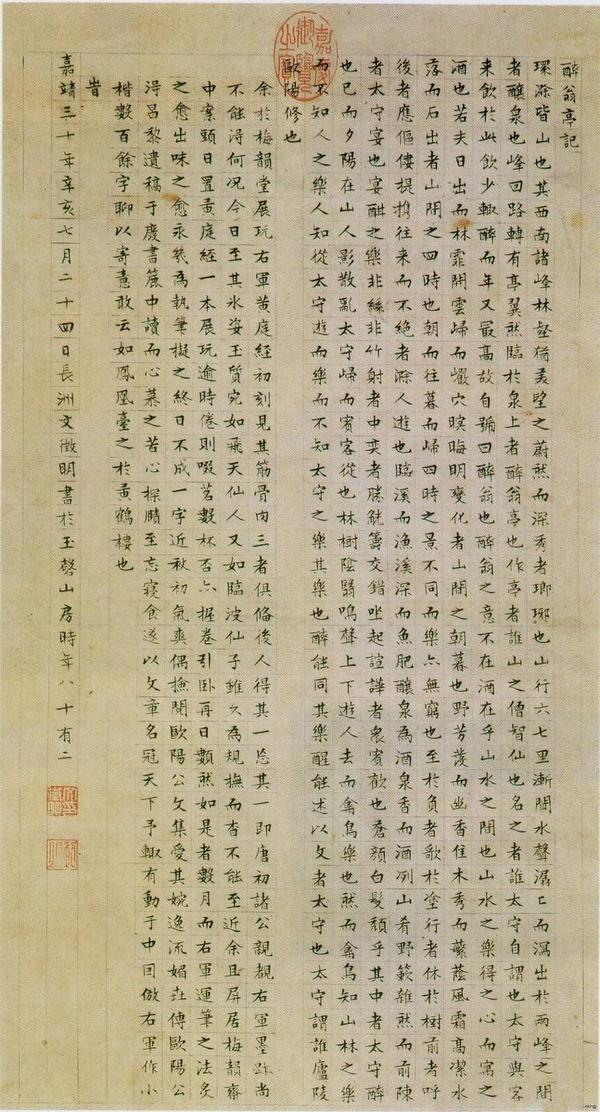 醉翁亭記
環滁皆山也其西南諸峰林壑猶美望之蔚然而深秀者瑯琊也山行六七里漸聞水聲潺〻而瀉出於兩峰之間
者釀泉也峰回路轉有亭翼然臨於泉上者醉翁亭也作亭者誰山之僧智仙也名之者誰太守自謂也太守與客
來飲於此飲少輒醉而年又最高故自號曰醉翁也醉翁之意不在酒在乎山水之間也山水之樂得之心而寓之
酒也若夫日出而林霏開雲歸而巖穴暝晦明變化者山間之朝暮也野芳發而幽香佳木秀而蘩蔭風霜高潔水
落而石出者山間之四時也朝而往暮而歸四時之景不同而樂亦無窮也至於負者歌於塗行者休於樹前者呼
後者應傴僂提攜往來而不絕者滁人遊也臨溪而漁溪深而魚肥釀泉為酒泉香而酒冽山肴野蔌雜然而前陳
者太守宴也宴酣之樂非絲非竹射者中奕者勝觥籌交錯坐起諠譁者衆賓歡也蒼顏白髮頹乎其中者太守醉
也已而夕陽在山人影散亂太守歸而賓客從也林樹陰翳鳴聲上下遊人去而禽鳥樂也然而禽鳥知山林之樂
而不知人之樂人知從太守遊而樂而不知太守之樂其樂也醉能同其樂醒能述以文者太守也太守謂誰廬陵
歐陽修也
余於梅韻堂展玩右軍黃庭經初刻見其筋骨肉三者俱備後人得其一忘其一即唐初諸公親覩右軍墨跡尚
不能得何況今日至其水姿玉質宛如飛天仙人又如臨波仙子雖久為規橅而杳不能至近余且屏居梅韻齋
中案頭日置黃庭經一本展玩逾時倦則啜茗數杯否亦握卷引臥再日纇然如是者數月而右軍運筆之法炙
之愈出味之愈永筴為執筆擬之終日不成一字近秋初氣爽偶撿閱歐陽公文集愛其婉逸流媚壵傳歐陽公
得昌黎遺稿于廢書簏中讀而心慕之苦心探賾至忘寢食遂以文章名冠天下予輒有動于中因倣右軍作小
楷數百餘字聊以寄意敢云如鳳凰臺之於黃鶴樓也
旹
嘉靖三十年辛亥七月二十四日長洲文徵明書於玉磬山房時年八十有二